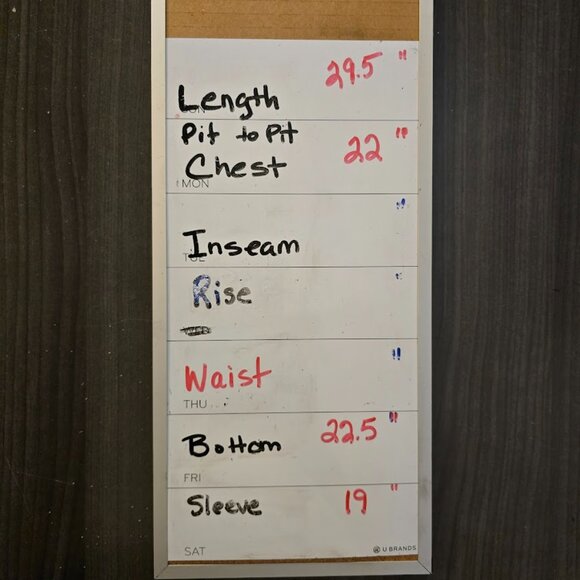 29.5 "
Length
Pit to Pit
Chest 22 "
MON
"
Inseam
"
Rise
"
Waist
THU
22.5 "
Bottom
FRI
Sleeve 19 "
SAT U BRANDS